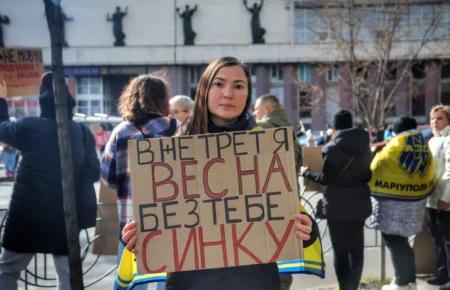 НЕ МОВЧИ
ВЖЕ ТРЕТЯ
ВЕСНА
БЕЗ ТЕБЕ
СИНКУ
МАРІУПОЛЬ